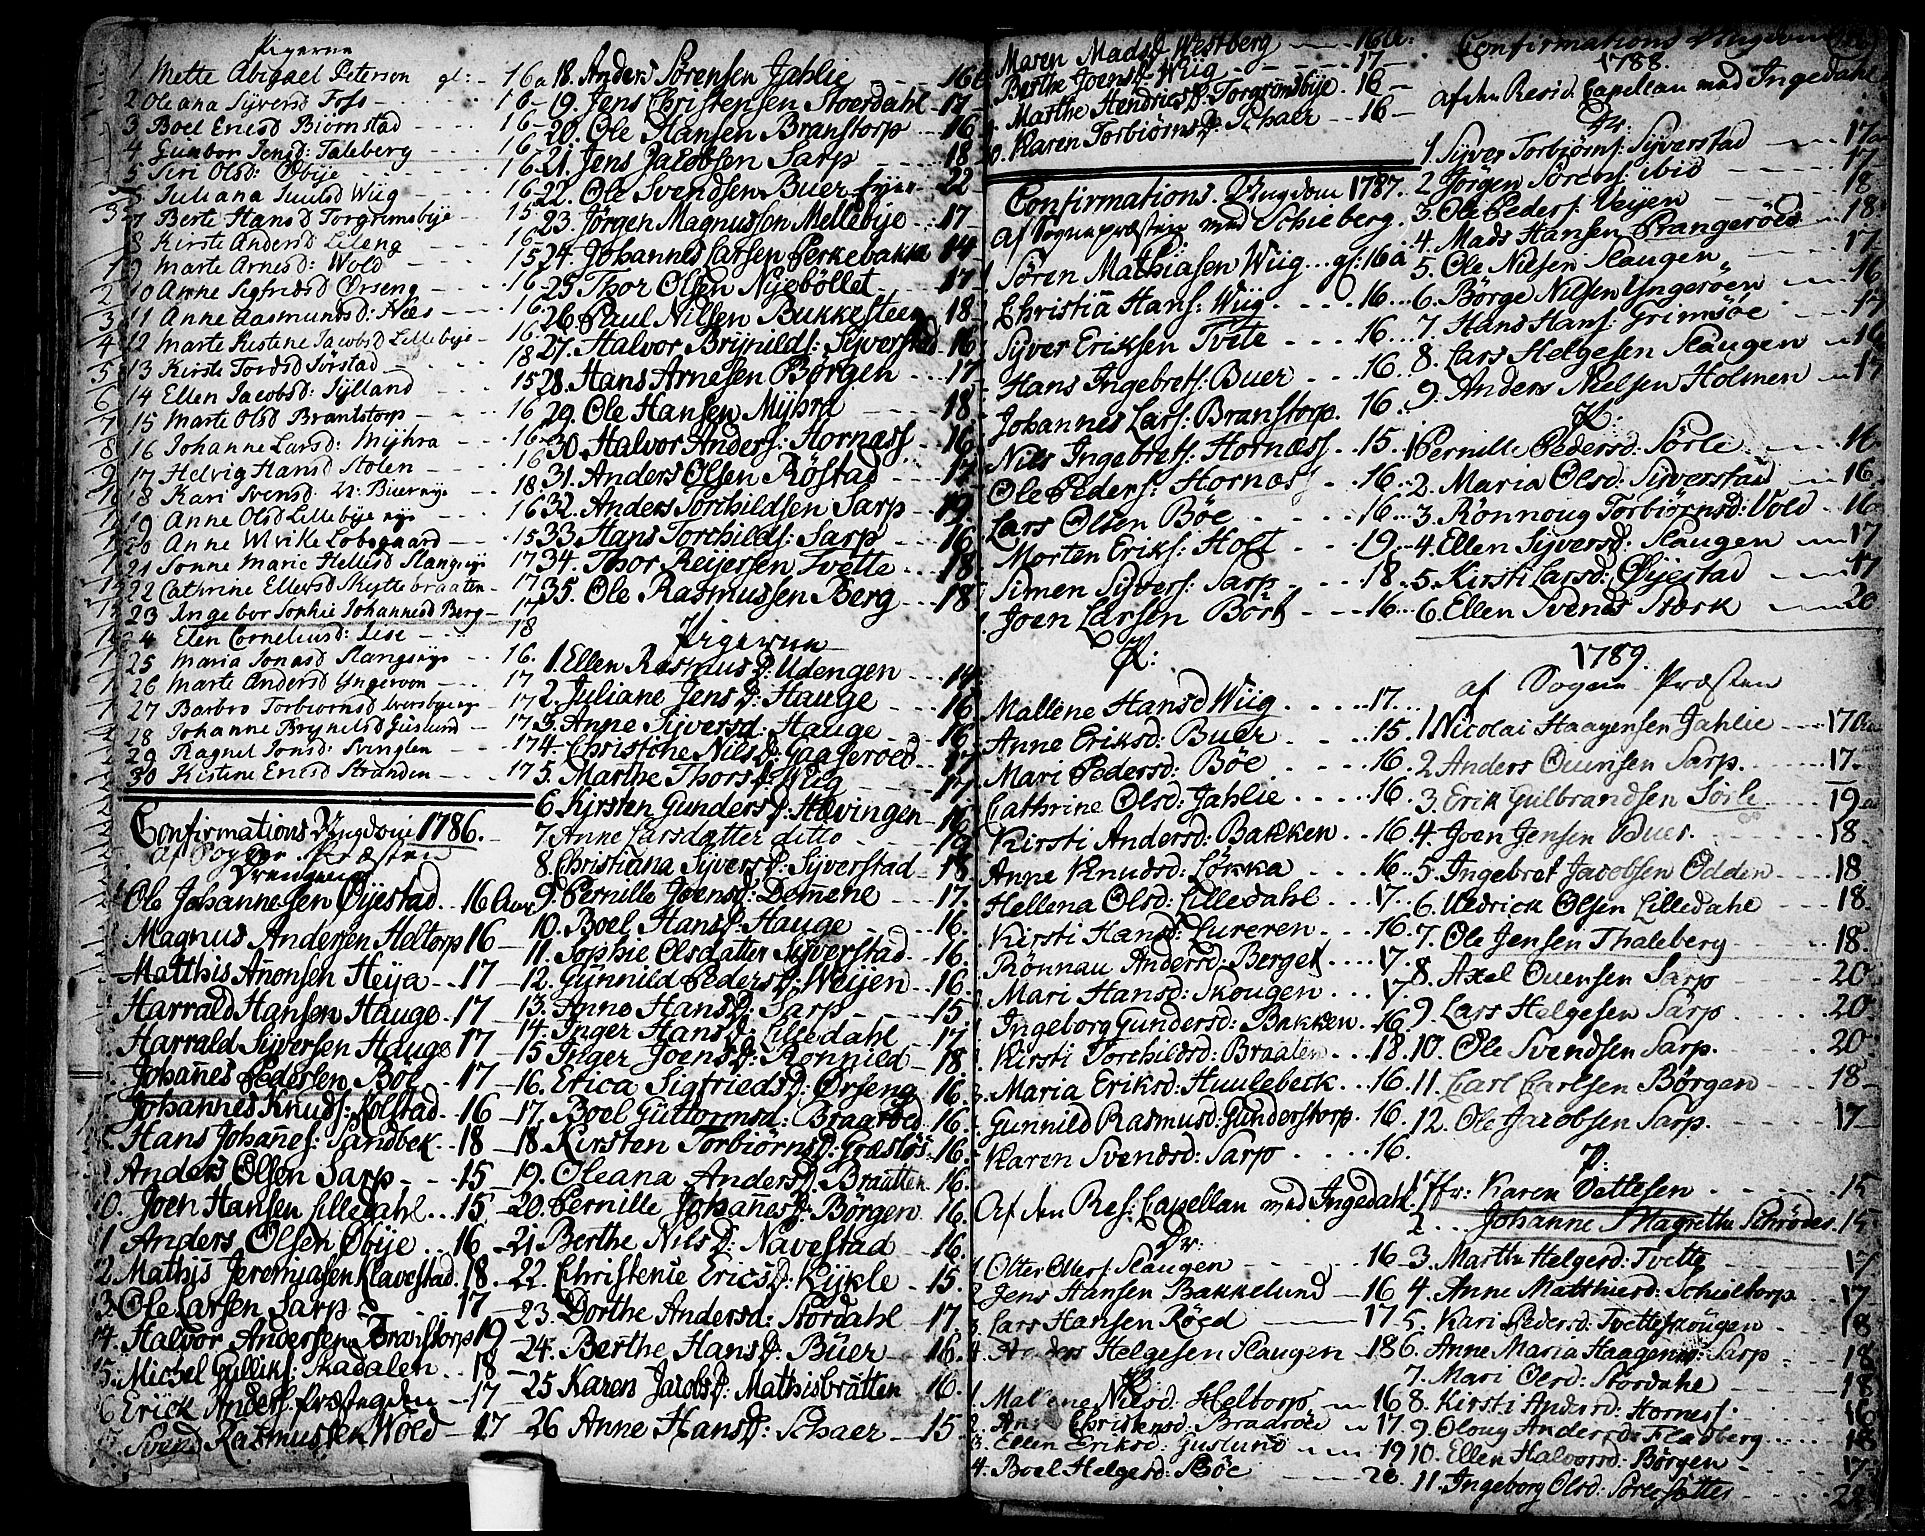 Pigerne
1 Mette Abigael Peterson gl: - 16 a
2 Oleana Sÿversd Foss - - - 16 -
3 Boel Ericsd Biørnstad - - - 16 -
4 Gunbor Jensd: Taleberg - - - 16
5 Siri Olsd: Øbije - - - 16
Juliana Juulsd Wiig - - - 16
7 Berte Hansd Torgrimsbÿe - - 15
8 Kirste Andersd Lileng - - 16
9 Marte Arnesd: Wold - - - 15
10 Anne Sigfridsd Ørseng - - - 16
11 Anne Aasmundsd: Næs - - - 16
12 Marte Kistene Jacobsd Lillebÿe - - 16
13 Kirste Tordsd Sørstad - - - 18
14 Ellen Jacobsd: Jÿlland - - - 15
15 Marte Olsd Brantstorp - - - 16
16 Johanne Larsd: Mÿhra - - - 16
17 Helvig Hansd Stolen - - - 16
18 Kari Svensd - - 18
19 Anne Olsd Lillebÿe - - 16
20 Anne Ulrike Lobsgaard - - - 15
21 Sonne Marie Hellisd Slangsÿs 17
22 Cathrine Ellevsd Skÿttebraaten - 17
23 Ingebor Sophie Johannesd Berg - 17
24 Elen Corneliusd: Lise - - 18
25 Maria Jonasd Slangsÿs - - 16.
26 Marte Andersd Yngeroen - - - 17
27 Barbro Torbiørnsd - - 17
28 Johanne Brÿnildsd Guslund - - 17
29 Ragnel Jonsd: Svinglen - - - 17
30 Kistene Ericsd Stranden - - - 17
Confirmations Ungdom 1786.
af Sogne Præsten
Drengene
Ole Johannesen Øÿestad. - 16 Aar
Magnus Andersen Heltorp 16 -
Matthis Anonsen Heÿa - - 17 -
Harrald Hansen Hauge. 17 -
Harrald Sÿversen Hauge 17 -
Johanes Pedersen Boe - 17 -
Johannes Knuds: Kolstad. - 16 -
Hans Johanes: Sandbek - 18 -
Anders Olsen Sarp - - 15 -
10. Joen Hansen Lilledahl. - 15 -
1 Anders Olsen Øbije - - 16 -
2. Mathis Jeremiasen Klavestad. 18. -
3. Ole Larsen Sarp - - - 17 -
14. Halvor Andersen Branstorp 19 -
15. Michel Gulliks: Skadalen - - 18 -
16 Erick Anders: Præstegden - 17 -
17 Svend Rasmussen Wold - 17
18. Anders Sørensen Jahlie - - - 16
19. Jens Christensen Stoerdahl - 17 -
20. Ole Hansen Branstorp - - 16
21. Jens Jacobsen Sarp - - - - 18
22. Ole Svendsen Buer - - 22
23. Jørgen Magnusson Mellebÿe. - 17 -
24. Johannes Larsen Perkebakka 14
25. Thor Olsen Nÿebøllet - - 17 -
26. Paul Nilsen Bukkesteen - 18 -
27. Halvor Brÿnilds: Sÿverstad. 16
28. Hans Arnesen Børgen - - - 17
29. Ole Hansen Mÿhra - - - - 18
30. Halvor Anders: Hornæss - 16
31. Anders Olsen Røstad - - 17
32. Anders Torchildsen Sarp - - 19
33. Hans Torchilds: Sarp - - 16
34. Thor Reÿersen Tvette - - - 18
35. Ole Rasmussen Berg - - 18
Pigerne
1. Ellen Rasmus D: Udengen - - 14
2. Juliane Jens D: Hauge - - - 16
3. Anne Sÿversd: Hauge - - - 16
4. Christohe Nils D: Gaaseroed - - 17
5. Marthe Thors D: Wiig - - - 17
6. Kÿrsten Gunders D: Helvingen - 16
7. Anne Larsdatter ditto - - - 19
8. Christiana Sÿvers D: Sÿverstad - 18
9. Pernille Joens D: Demene - - - 17.
10. Boel Hans D: Hauge - - - 16.
11. Sophie Olsdatter Sÿverstad - 16.
12. Gunnild Peders D: Weÿen - - 16.
13. Anne Hans D: Sarp - - - 15
14. Inger Hans D: Lilledahl - - 17
15. Inger Joens D: Ronnild - 18.
16. Erica Sigfrieds D: Ørseng - 16
17. Boel Guttormsd: Braaroed - 16
18. Kirsten Torbiørns D: Græsløs - 16.
19. Oleana Anders D: Brautten 16.
20. Pernille Johanes D: Børgen 16.
21. Berthe Nils D: Navestad - - 16.
22. Christenie Erics D: Kÿkle - 15.
23. Dorthe Andersd: Stordahl - 17
24. Berthe Hans D: Büer - - 16.
25 Karen Jacobs D: Mathisbrutten 16.
26 Anne Hans D: Schaer - - 15.
Maren Mads D Westberg - - 16 a.
Berthe Joens D: Wiig - - - - 17 -
Marthe Hendrics D: Torgromsbÿe - 16 -
Karen Torbiørns D: Schaer - - 16 -
Confirmations Ungdom 1787.
af Sognepræsten med Schieberg
Søren Mathiasen Wiig - - gl: 16 a
Christia Hans: Wiig - - - 16.
Sÿver Eriksen Tvite - - - 16
Hans Ingebrets: Buer - - - 16
Johannes Lars: Branstorp. 16.
Nils Ingebrets: Hornæss - 15.
Ole Peders: Hornæs - - 16.
Lars Olsen Bøe - - - - 16.
Morten Eriks: Holt - - - 19.
Simen Sÿvers: Sarp - - - 18.
Joen Larsen Bork - - - 16.
P:
Mallene Hansd Wiig - - - - 17
Anne Eriksd: Buer - - - 15.
Mari Pedersd: Bøe - - - 16.
Cathrine Olsd: Jahlie - - - - 16.
Kirsti Andersd: Bakken - - 16.
Anne Knudsd: Løkka - - - 16.
Hellena Olsd: Lilledahl - - - 17.
Kirsti Hansd: Lureren - - - 16.
Rønnau Andersd: Berget - - - 17.
Mari Hansd: Skougen - - - 17.
Ingeborg Gundersd: Bakken. - 16.
Kirsti Torchildsd: Braaten - - 18.
Maria Eriksd: Huulebæk - - - 16.
Gunnild Rasmusd: Gunderstorp. 16.
Karen Svendsd: Sarp - - - - 16.
Af den Res: Capellan med Ingedahl:
Dr:
1 Olter Olles: Slaugen - - - 16
2 Jens Hansen Bakkelund - 16
3. Lars Hansen Røed - - - 17
4. Anders Helgesen Slaugen - 18
P:
1 Mallene Nilsd: Heltorp - - 16
2. Christensd: Bradroe - - 17
3. Ellen Eriksd: Guslund - - - 19
4. Boel Helgesd: Bøe - - - 20
Confirmations Ungdom
1788.
af den Resid. Capellan med Ingedahl
Dr:
1. Sÿver Torbiørns: Sÿverstad - - 17 a
2 Jørgen Sørens: ibid - - - 17
3. Ole Peders: Veÿen - - - 18
4. Mads Hansen Prangerøed - 18.
5. Ole Nilsen Slaugen - - - 17
6. Børge Nilsen Yngerøen - - - 16
7. Hans Hans: Grimsøe - - - 17
8. Lars Helgesen Slaugen - - 16
9. Anders Nielsen Holmen - - 17
P:
1 Pernille Pedersd: Sørle - - - 16
2. Maria Olsd: Sÿverstad - - 16.
3. Rønnoug Torbiørnsd: Vold - 16
4. Ellen Sÿversd: Slaugen - - 17
5. Kirsti Larsd: Øÿestad - - - 17
6. Ellen Svends Stærk - - - 20
1789.
af Sogne Præsten
1. Nicolai Haagensen Jahlie - - - 17 Aar
2 Anders Ouensen Sarp. - - - 17.
3. Erik Gulbrandsen Sørle - - 19
4. Joen Jensen Buer - - - 18
5. Ingebret Jacobsen Odden - - 18.
6. Uldrick Olsen Lilledahl - - - 18.
7. Ole Jensen Thaleberg - - - 18.
8. Axel Ouensen Sarp - - - 20
9. Lars Helgesen Sarp. - - - 20
10. Ole Svendsen Sarp. - - - 20
11. Carl Carlsen Børgen - - - 18 -
12. Ole Jacobsen Sarp. - - - 17
P:
1. Karen Vettesen - - - - 15
2. Johanne Magrethe Schrøder. 15
3. Marthe Helgesd: Tvette - - 17
4. Anne Matthiesd: Schieltorp. - 17
5. Kari Pedersd: Tvetteskougen - - - 18
6. Anne Maria Haagensd: Sarp - 18
7. Mari Olsd: Stordahl - - - 18
8. Kirsti Andersd: Hornes: - - 16
9. Oloug Andersd: Fladberg - - - 18
10. Ellen Halvorsd: Børgen - - - 17
11. Ingeborg Olsd: - - - 22